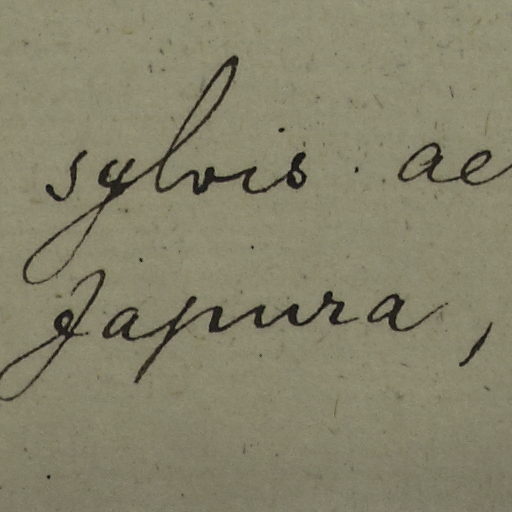 sylvis ae
Japura,